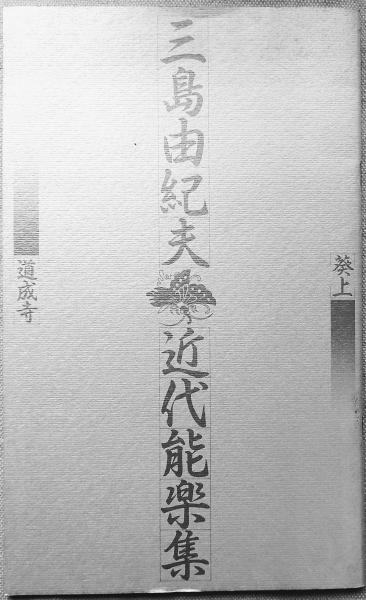 葵上
三島由紀夫
近代能楽集
道成寺